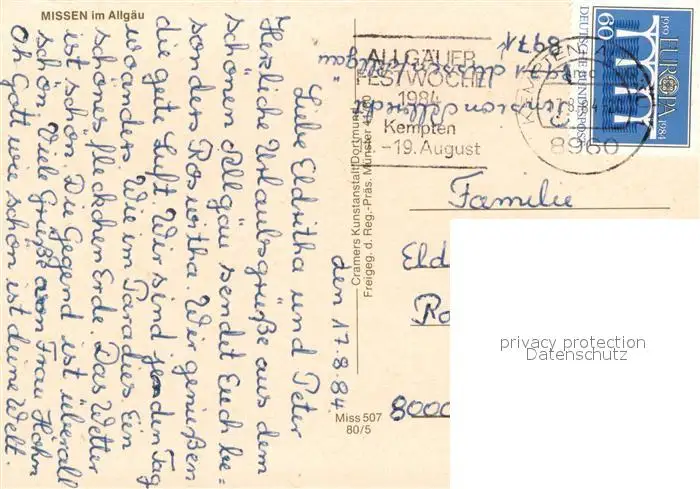 MISSEN im Allgäu
den 17.8.84.
Liebe Eldritha und Peter
Herzliche Urlaubsgrüße aus dem
schönen Allgäu sendet Euch be-
sonders Roswitha. Wir genießen
die gute Luft. Wir sind jenden Tag
woanders. Wie im Paradies. Ein
schönes flöckchen Erde. Das Wetter
ist schön. Die Gegend ist überall
schön. Viel Grüße von Frau Höhn
Oh Gott wie schön ist deine Welt.
Cramers Kunstanstalt Dortmund
Freigeg. d. Reg.-Präs. Münster
Miss 507
80/5
ALLGÄUER
FESTWOCHE
1984
Kempten
-19. August
KEMPTEN
8960
1959 EUROPA 1984
60
DEUTSCHE BUNDESPOST
Pension
8971
Familie
Eld
Ro
8000
privacy protection
Datenschutz